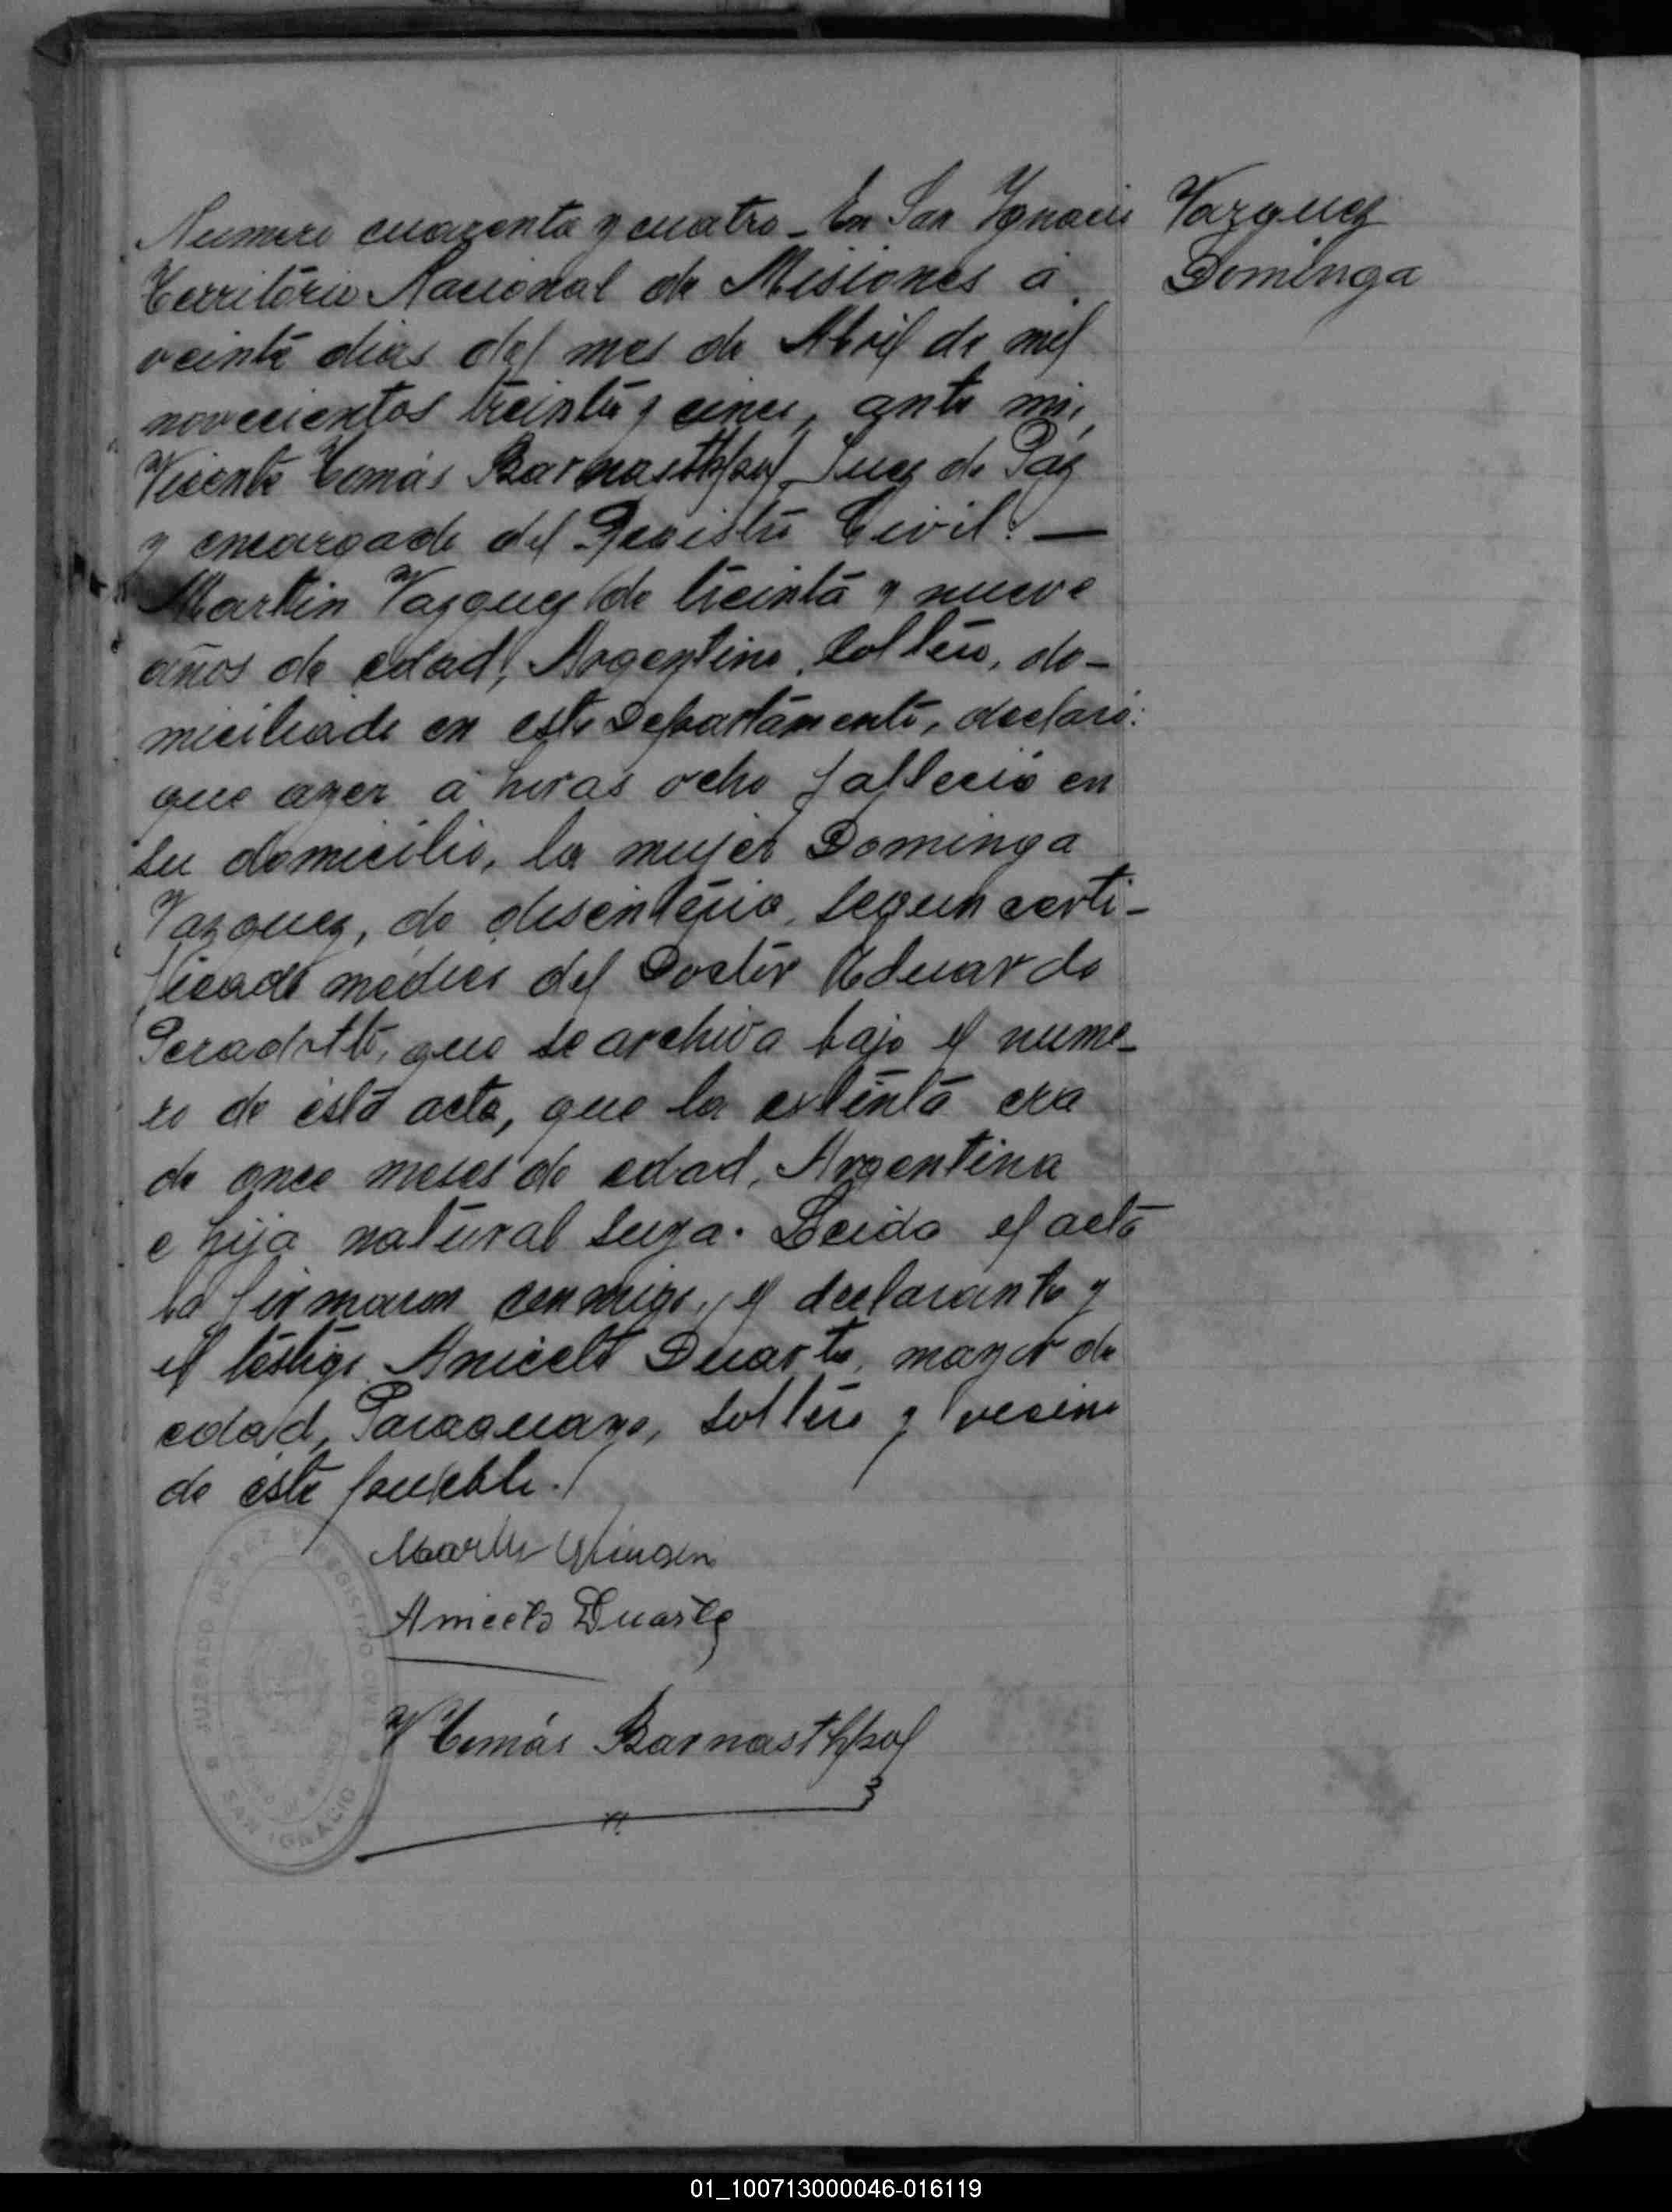 Vazquez
Dominga
Numero cuarenta y cuatro - En San Ygnacio
Territorio Nacional de Misiones á
veinte dias del mes de Abril de mil
novecientos treinta y cinco, ante mi,
Vicente Tomás Barnasthpol Juez de Páz
y encargado del Registro Civil: —
Martin Vazquez de treinta y nueve
años de edad, Argentino, soltero, do-
miciliado en este Departamento, declaró:
que ayer á horas ocho falleció en
su domicilio, la mujer Dominga
Vazquez, de disenteria, segun certi-
ficado médico del Doctor Eduardo
que se archiva bajo el nume-
ro de ésta acta, que la extinta era
de once meses de edad, Argentina
e hija natural suya. Leida el acta
la firmaron conmigo, el declarante y
el testigo Aniceto Duarte, mayor de
edad, Paraguayo, soltero y vecino
de éste pueblo.
Martin
Aniceto Duarte
V Tomás Barnasthpol
JUZGADO DE PAZ Y REGISTRO CIVIL
SAN IGNACIO
01_100713000046-016119